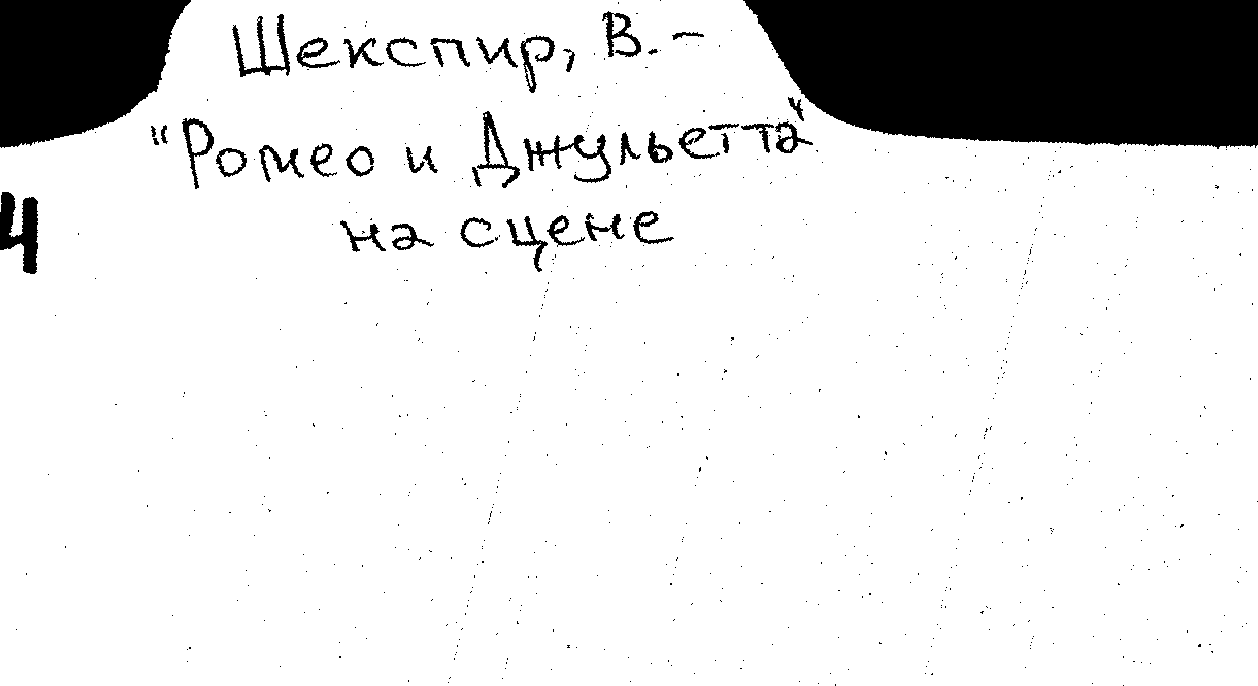 Шекспир, В. –
"Ромео и Джульетта"
на сцене